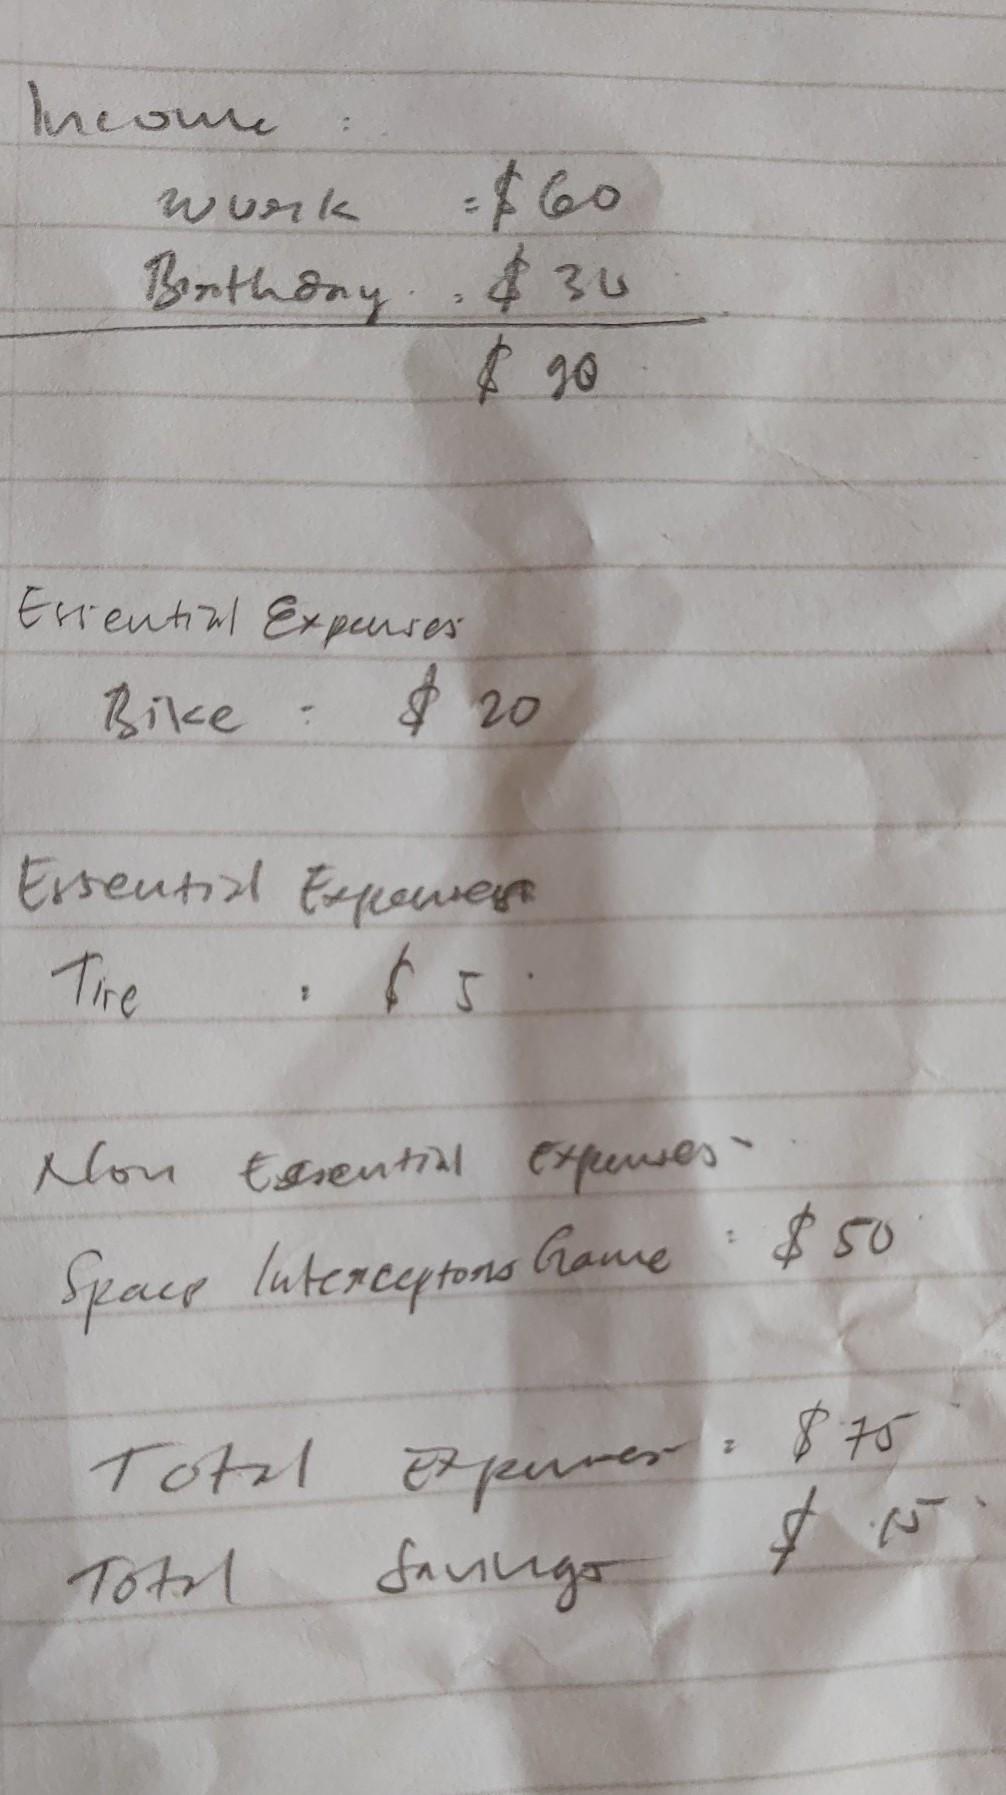 Income :
Work = $60
Birthday : $ 30
$ 90
Essential Expenses
Bike : $ 20
Essential Expenses
Tire : $ 5
Non Essential expenses
Space Interceptors Game : $ 50
Total Expenses : $ 75
Total Savings $ 15